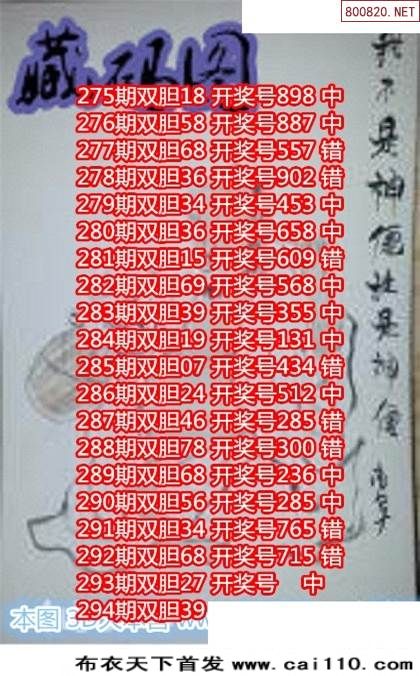 800820.NET
藏码图
我不是神但比是神傻
275期双胆18 开奖号898 中
276期双胆58 开奖号887 中
277期双胆68 开奖号557 错
278期双胆36 开奖号902 错
279期双胆34 开奖号453 中
280期双胆36 开奖号658 中
281期双胆15 开奖号609 错
282期双胆69 开奖号568 中
283期双胆39 开奖号355 中
284期双胆19 开奖号131 中
285期双胆07 开奖号434 错
286期双胆24 开奖号512 中
287期双胆46 开奖号285 错
288期双胆78 开奖号300 错
289期双胆68 开奖号236 中
290期双胆56 开奖号285 中
291期双胆34 开奖号765 错
292期双胆68 开奖号715 错
293期双胆27 开奖号 中
294期双胆39
本图
布衣天下首发 www.cai110.com